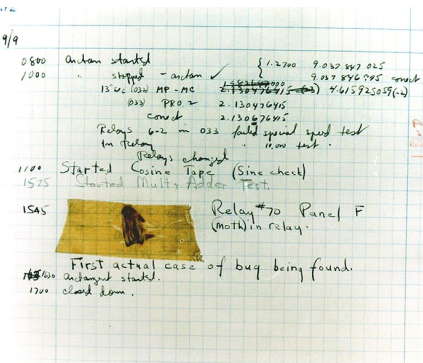 9/9
0800 Antan started { 1.2700 9.037 847 025
1000 " stopped - antan ✓ 9.037 846 995 conect
13'uc (032) MP - MC 2.130476415 4.615925059(-2)
(033) PRO 2 2.130476415
conect 2.130676415
Relays 6-2 in 033 failed special speed test
in Relay " 10,000 test.
Relays changed
1100 Started Cosine Tape (Sine check)
1525 Started Mult + Adder Test.
1545 Relay #70 Panel F
(moth) in relay.
First actual case of bug being found.
1630 antangent started.
1700 closed down.